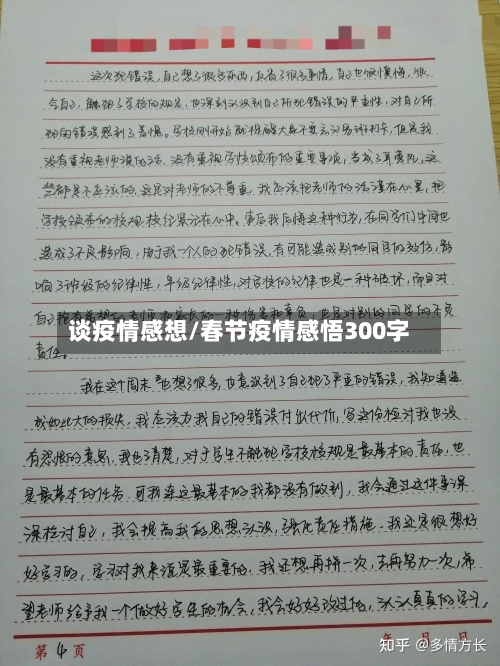 这次犯错误，自己想了很多东西，反省了很多事情，自己也很懊悔，很
自己，触犯了学校的规定，也深刻认识到自己所犯错误的严重性，对自己所
犯的错误感到了羞愧。学校刚开始就提醒大家不要忘记易班打卡，但是我
没有重视老师讲的话，没有重视学校颁布的重要事项，当成了耳旁风，这
些都是不应该的。这是对老师的不尊重。我应该把老师的话谨在心里，把
学校颁布的校规校纪紧记在心中。事后我后悔这种行为，在同学们中间也
造成了不良影响，由于我一个人的犯错误，有可能造成别的同学的效仿，影
响了班级的纪律性，年级纪律性，对学校的纪律也是一种破坏，而且对
自己抱有希望的老师和家长的一种伤害和辜负，也是对别的同学的不负
责任。
谈疫情感想/春节疫情感悟300字
我在这个周末也想了很多，也意识到了自己犯了严重的错误，我知道造
成如此大的损失，我应该为我自己的错误付出代价，写这份检讨我也没
有怨恨的意思，我也了清楚，对于学生不触犯学校校规是最基本的责任，也
是最基本的任务，可我连这最基本的我都没有做到，我会通过这件事深
深检讨自己，我会提高我的思想认识，强化责任措施。我还是很想好
好学习的，学习对我来说是最重要的，我还想再拼一次，去再努力一次，希
望老师给予我一个做好学生的机会，我会好好改过的，认认真真的学习，
第4页
年 月 日
知乎 @多情方长